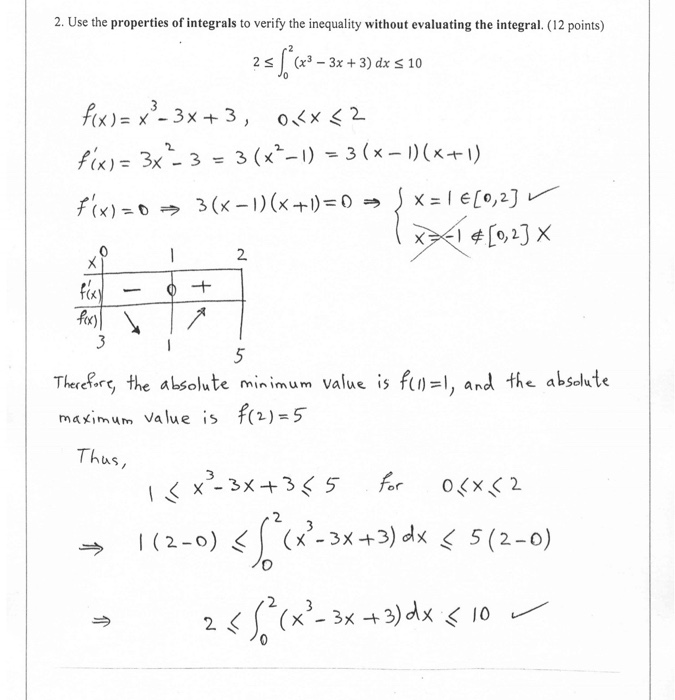 2. Use the properties of integrals to verify the inequality without evaluating the integral. (12 points)
2 ≤ ∫₀² (x³ − 3x + 3) dx ≤ 10
f(x) = x³ − 3x + 3 , 0 ≤ x ≤ 2
f'(x) = 3x² − 3 = 3(x² − 1) = 3(x − 1)(x + 1)
f'(x) = 0 ⇒ 3(x − 1)(x + 1) = 0 ⇒ { x = 1 ∈ [0,2] ✓
x = −1 ∉ [0,2] ×
x 0 1 2
f'(x) − 0 +
f(x) ↘ ↗
3 1 5
Therefore, the absolute minimum value is f(1) = 1, and the absolute
maximum value is f(2) = 5
Thus,
1 ≤ x³ − 3x + 3 ≤ 5 for 0 ≤ x ≤ 2
⇒ 1(2 − 0) ≤ ∫₀² (x³ − 3x + 3) dx ≤ 5(2 − 0)
⇒ 2 ≤ ∫₀² (x³ − 3x + 3) dx ≤ 10 ✓